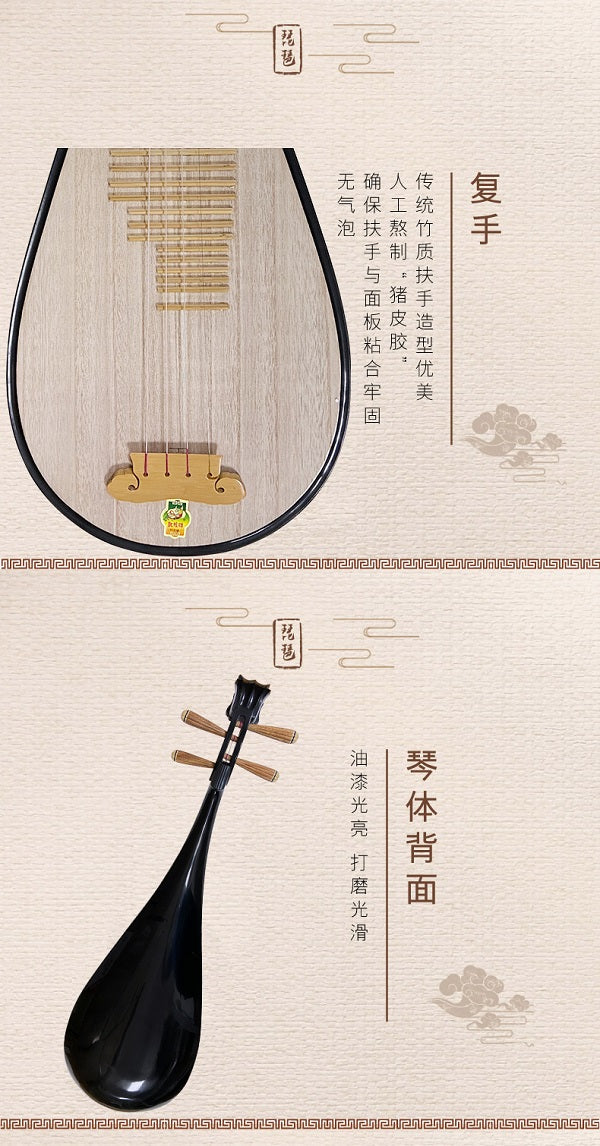 琵琶
复手
传统竹质扶手造型优美
人工熬制“猪皮胶”
确保扶手与面板粘合牢固
无气泡
琵琶
琴体背面
油漆光亮 打磨光滑